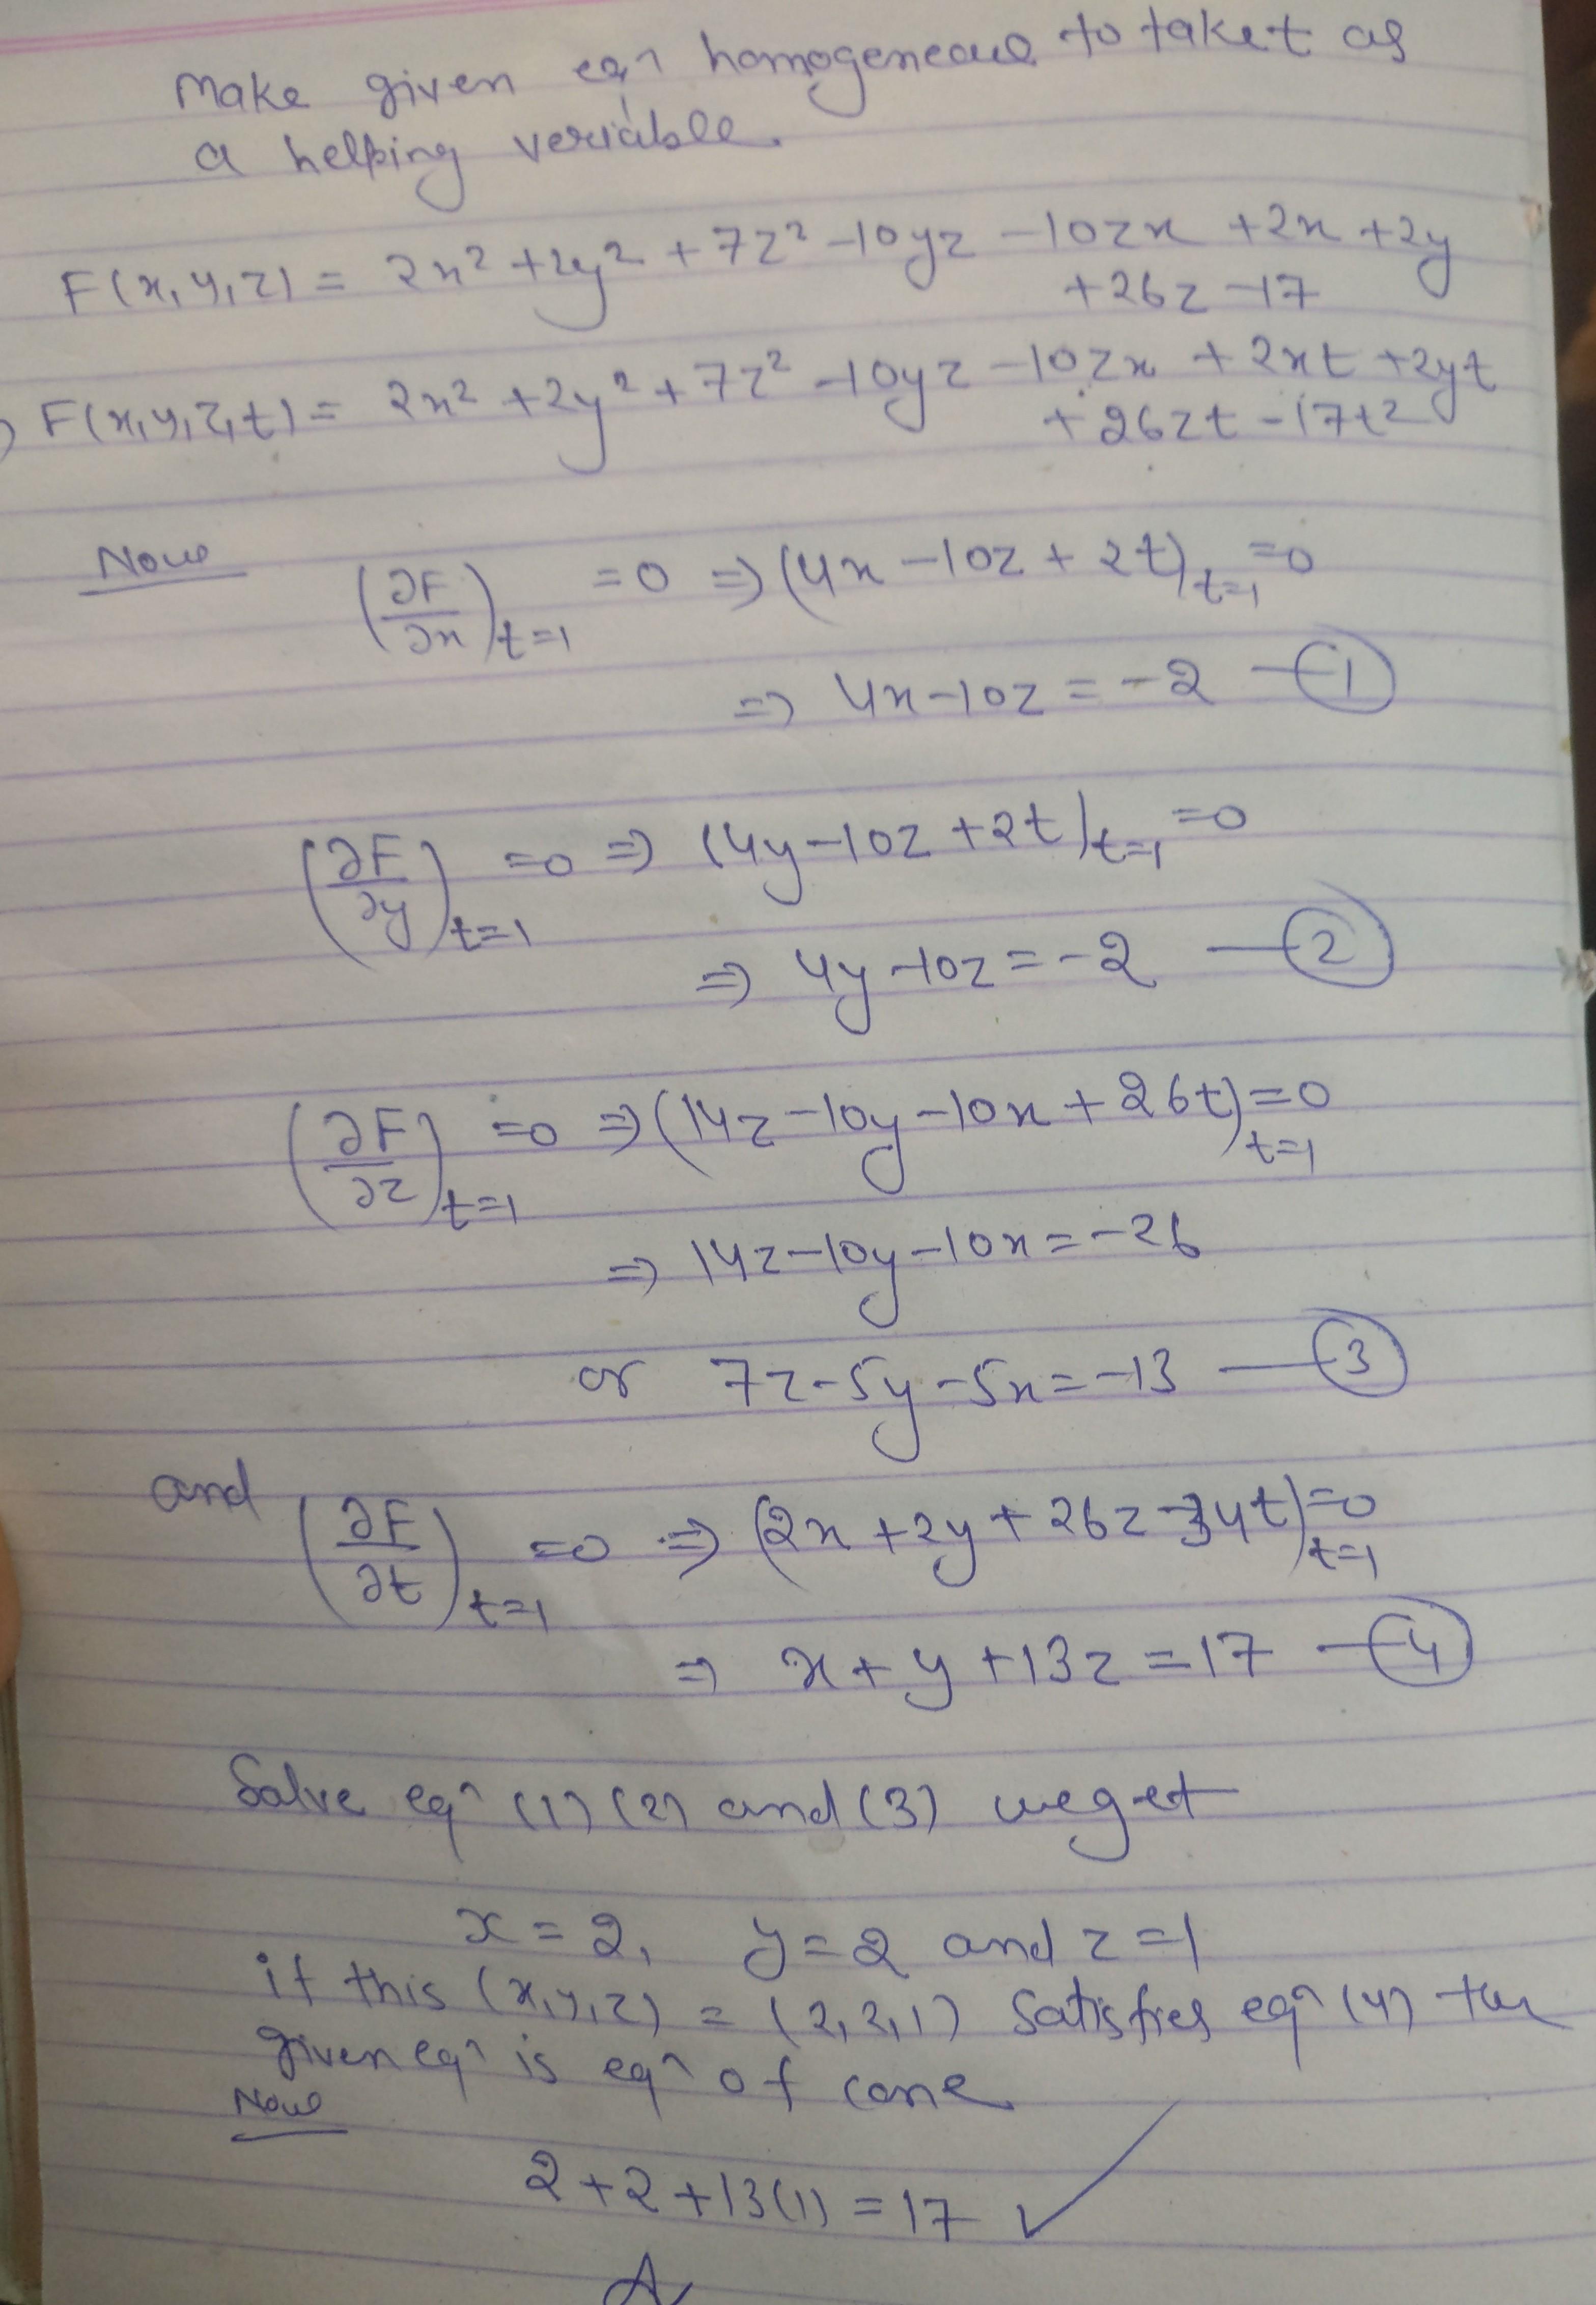 Make given eqn homogeneous to take t as
a helping veriable.
F(x,y,z) = 2x² + 2y² + 7z² - 10yz - 10zx + 2x + 2y
+ 26z - 17
F(x,y,z,t) = 2x² + 2y² + 7z² - 10yz - 10zx + 2xt + 2yt
+ 26zt - 17t²
Now (∂F/∂x)t=1 = 0 ⇒ (4x - 10z + 2t)t=1 = 0
⇒ 4x - 10z = -2 — ①
(∂F/∂y)t=1 = 0 ⇒ (4y - 10z + 2t)t=1 = 0
⇒ 4y - 10z = -2 — ②
(∂F/∂z)t=1 = 0 ⇒ (14z - 10y - 10x + 26t)t=1 = 0
⇒ 14z - 10y - 10x = -26
or 7z - 5y - 5x = -13 — ③
and (∂F/∂t)t=1 = 0 ⇒ (2x + 2y + 26z - 34t)t=1 = 0
⇒ x + y + 13z = 17 — ④
Solve eqn (1) (2) and (3) we get
x = 2, y = 2 and z = 1
if this (x,y,z) = (2,2,1) Satisfies eqn (4) the
given eqn is eqn of cone
Now
2 + 2 + 13(1) = 17 ✓